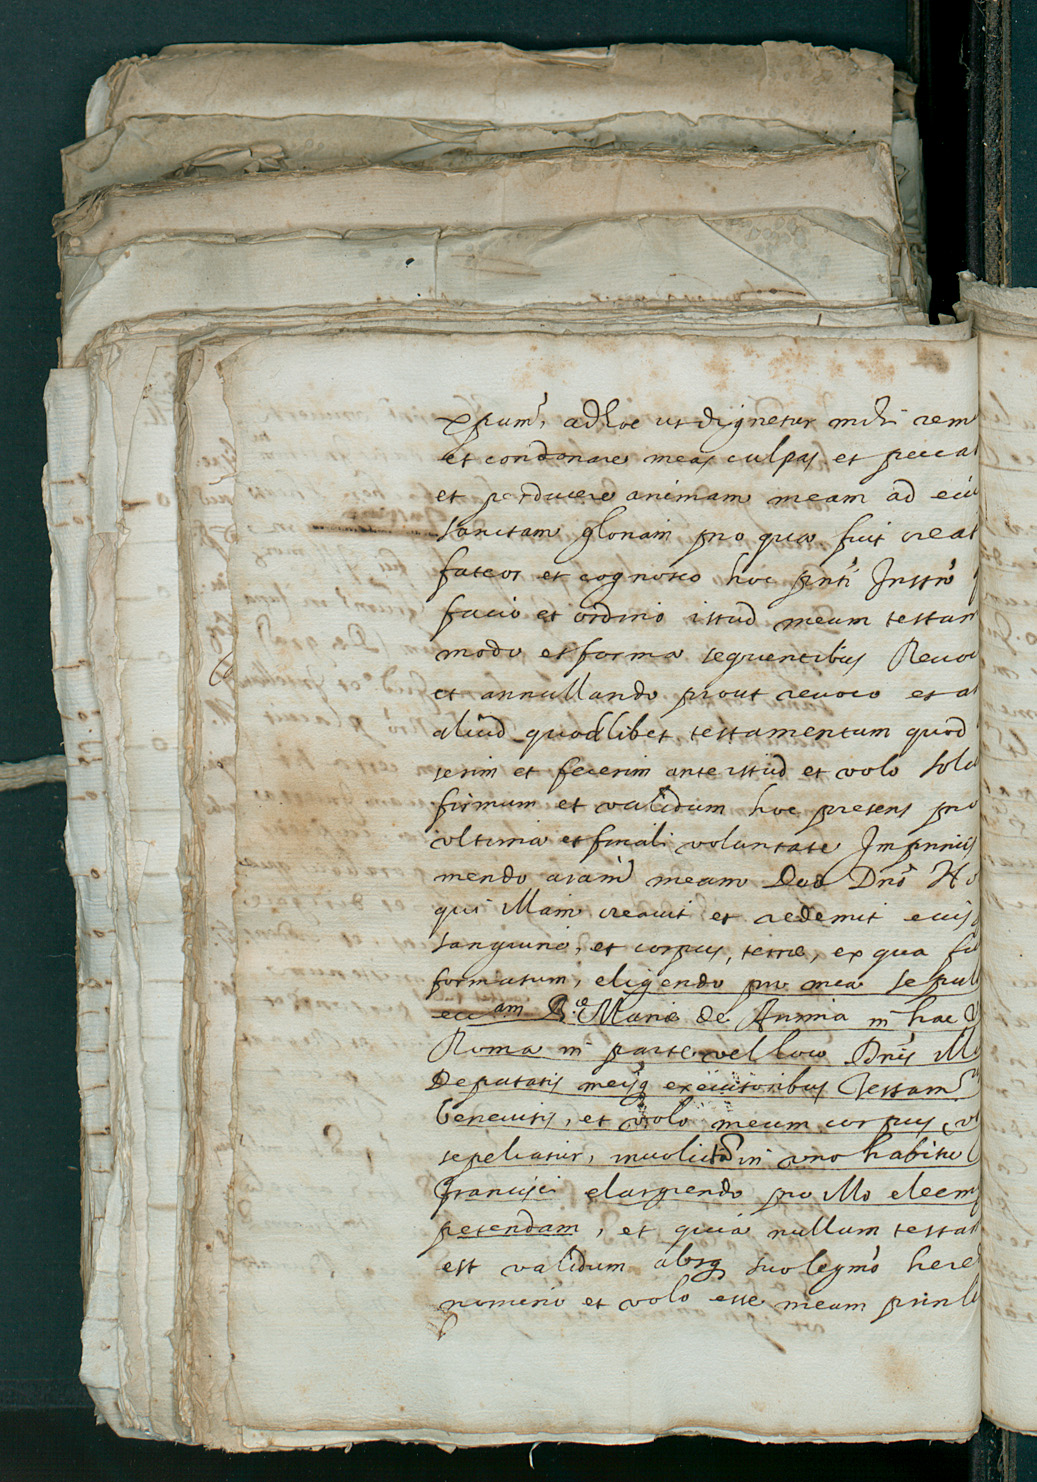 xpum, ad hoc ut dignetur mihi rem
et condonare meas culpas et pecca
et perducere animam meam ad eiu
sanctam gloriam pro qua fuit creat
fateor et cognosco hoc pnti Instro
facio et ordino istud meum testam
modo et forma sequentibus Revoc
et annullando prout revoco et a
aliud quodlibet testamentum quod
serim et fecerim ante istud et volo solu
firmum et validum hoc presens pro
ultima et finali voluntate Imprimis
mendo aiam meam Deo Dno
qui illam creavit et redemit eius
sanguine, et corpus, terre, ex qua fu
formatum, eligendo pro mea sepul
eccam Marie de Anima in hac
Roma in parte vel loco Dnis
Deputatis meisq executoribus Testam
benevisis, et volo meum corpus
sepeliatur, involutu in uno habitu
Francisci elargiendo pro illo eleem
petendam, et quia nullum testa
est validum absq suo legmo here
nomino et volo esse meam